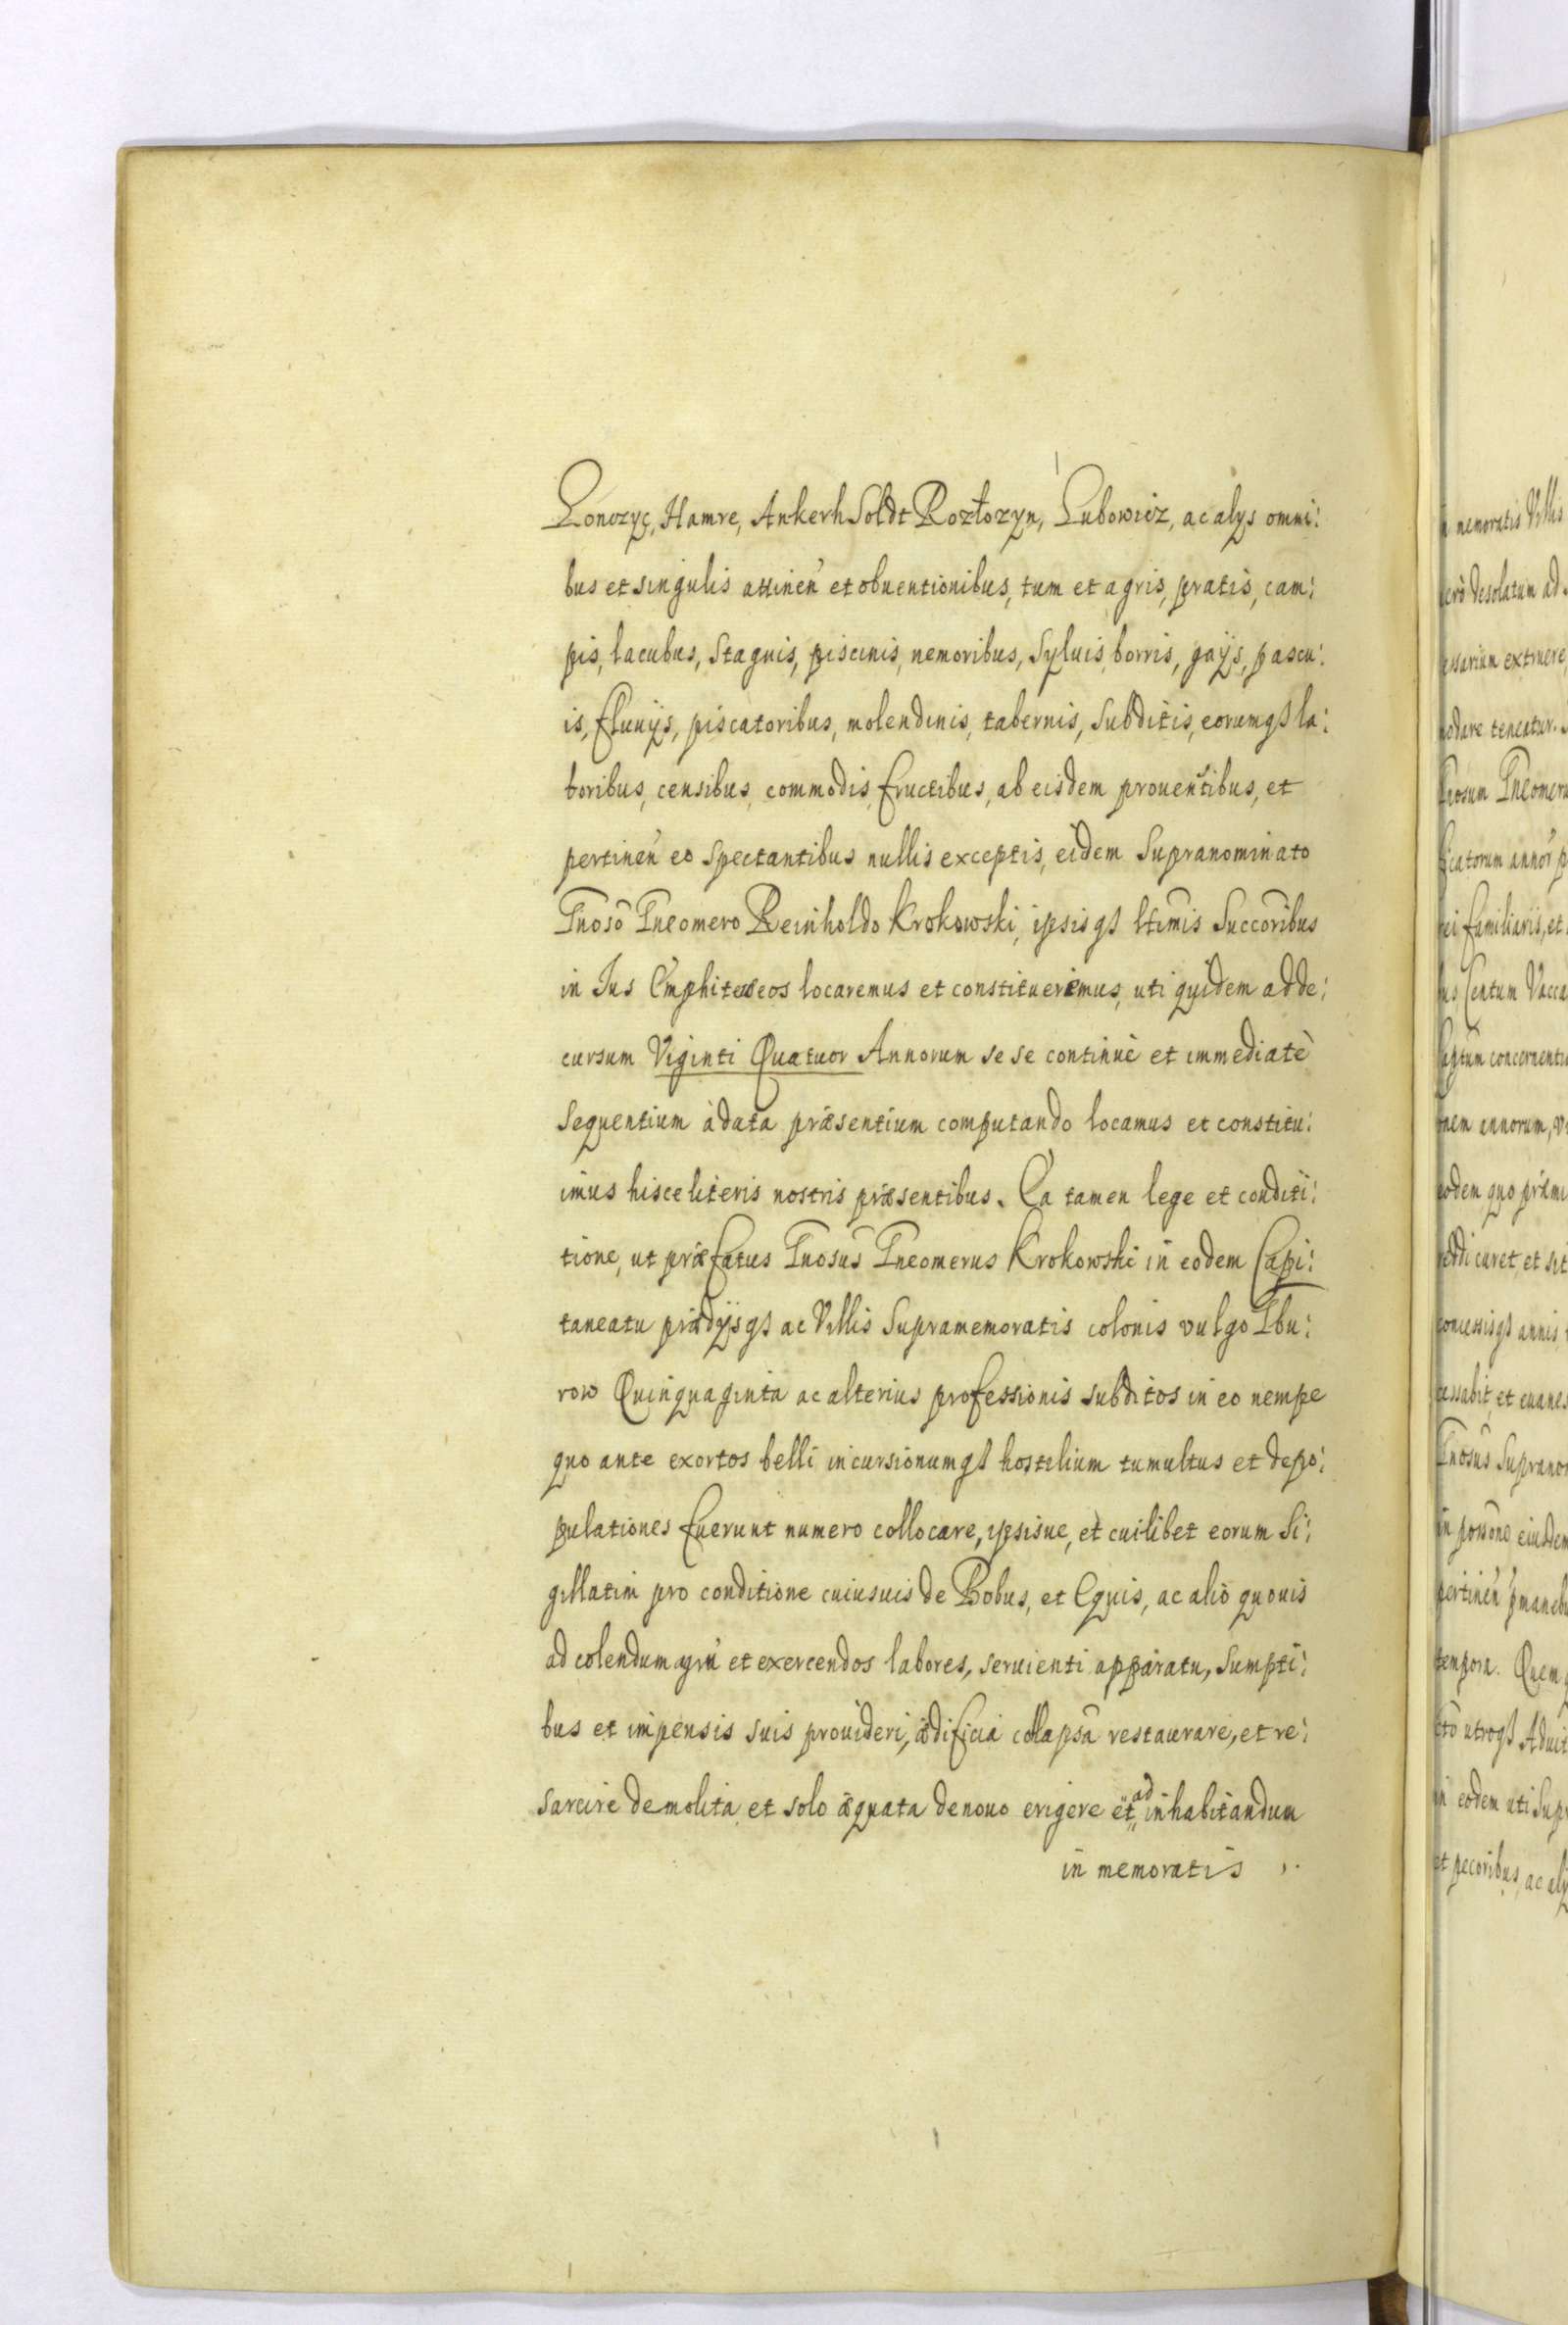 Lonozyc, Hamre, Ankerh Soldt Rozłozyn, Lubowicz, ac alys omni:
bus et singulis attinen̄ et obuentionibus, tum et agris, pratis, cam:
pis, lacubus, stagnis, piscinis, nemoribus, syluis, borris, gaÿs, pascu:
is, fluuÿs, piscatoribus, molendinis, tabernis, subditis, eorumqз la:
boribus, censibus, commodis, fructibus, ab eisdem prouentibus, et
pertinen̄ eo spectantibus nullis exceptis, eidem supranominato
Gnoso Gneomero Reinholdo Krokowski, ipsisqз ltimis succoribus
in Jus Emphiteuseos locaremus et constitueremus, uti quidem ad de:
cursum Viginti Quatuor Annorum se se continuè et immediatè
sequentium à data præsentium computando locamus et constitu:
imus hisce literis nostris præsentibus. Ea tamen lege et conditi:
tione, ut præfatus Gnosus Gneomerus Krokowski in eodem Capi:
taneatu prædÿsqз ac Villis supramemoratis colonis vulgo Gbu:
row Quinquaginta ac alterius professionis subditos in eo nempe
quo ante exortos belli incursionumqз hostilium tumultus et depo:
pulationes fuerunt numero collocare, ipsisue, et cuilibet eorum si:
gillatim pro conditione cuiusuis de Bobus, et Equis, ac alio quouis
ad colendum agrū et exercendos labores, seruienti apparatu, sumpti:
bus et impensis suis prouideri, ædificia collapsa restaurare, et re:
sarcire demolita et solo æquata denouo erigere et ad inhabitandum
in memoratis
n memoratis Villis
erò desolatum ad
essarium extruere
odare teneatur.
Gnosum Gneomeru
ficatorum annor̄ p
ei familiaris, et
us Centum Vacca
concernenti
nem annorum, v
eodem quo præmi
et sit
concessisqз annis
cessabit, et euanes
Gnosus Supranom
in possone eiusdem
pertinen̄ pmanebu
tempora. Quem
utroqз Aduit
in eodem uti Supr
et pecoribus, ac aly